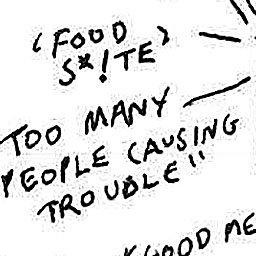 (FOOD)
S*!TE
TOO MANY
PEOPLE CAUSING
TROUBLE"
"GOOD ME